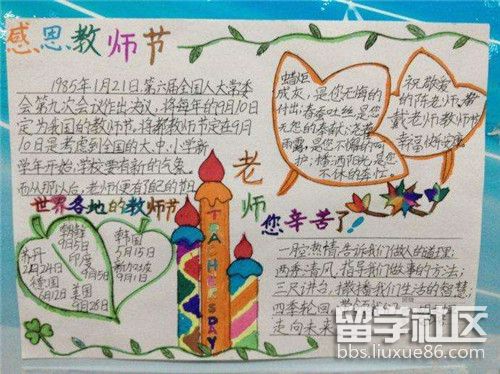 感恩教师节
1985年1月21日,第六届全国人大常委
会第九次会议作出决议,将每年的9月10日
定为我国的教师节。将教师节定在9月
10日是考虑到全国的大、中、小学新
学年开始,学校要有新的气象。
而从那以后,老师便有了自己的节日
蜡烛
成灰,是您无悔的
付出;春蚕吐丝,是您
无怨的奉献;
雨露,是您不悔的呵
护;播洒阳光,是您
不休的奉任。
祝敬爱
的陈老师、
戴老师教师节
幸福快乐
世界各地的教师节
朝鲜
9月5日
印度
9月5日
苏丹
2月24日
德国
6月12日
美国
9月28日
韩国
5月15日
新加坡
9月1日
TEACHER'SDAY
老师
您辛苦了!
一腔热情,告诉我们做人的道理;
两季清风,指导我们做事的方法;
三尺讲台,撒播我们生活的智慧;
四季轮回
走向未来
留学社区
bbs.liuxue86.com